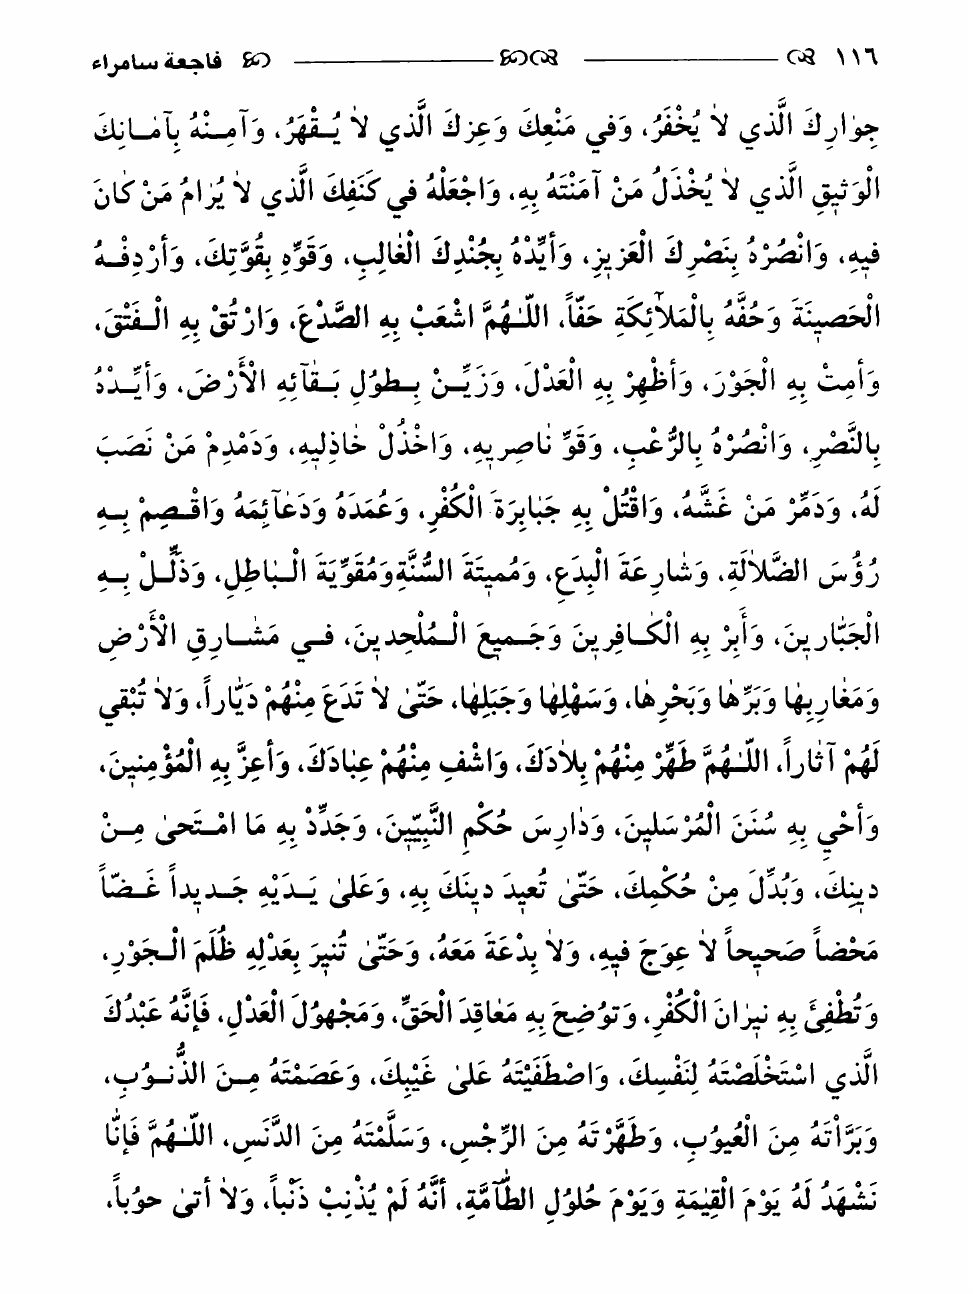 ١١٦ فاجعة سامراء
جِوٰارِكَ الَّذي لاٰ يُخْفَرُ، وَفي مَنْعِكَ وَعِزِكَ الَّذي لاٰ يُـقْهَرُ، وَآمِـنْهُ بِأَمٰـانِكَ
الْوَثيٖقِ الَّذي لاٰ يُخْذَلُ مَنْ آمَنْتَهُ بِهِ، وَاجْعَلْهُ في كَنَفِكَ الَّذي لاٰ يُرٰامُ مَنْ كٰانَ
فيٖهِ، وَانْصُرْهُ بِنَصْرِكَ الْعَزيٖزِ، وَأَيِّدْهُ بِجُنْدِكَ الْغٰالِبِ، وَقَوِّهِ بِقُوَّتِكَ، وَأَرْدِفْـهُ
الْحَصيٖنَةَ وَحُفَّهُ بِالْمَلاٰئِكَةِ حَفّاً، اللّٰـهُمَّ اشْعَبْ بِهِ الصَّدْعَ، وَارْتُقْ بِهِ الْـفَتْقَ،
وَأَمِتْ بِهِ الْجَوْرَ، وَأَظْهِرْ بِهِ الْعَدْلَ، وَزَيِّـنْ بِـطُولِ بَـقٰائِهِ الْأَرْضَ، وَأَيِّـدْهُ
بِالنَّصْرِ، وَانْصُرْهُ بِالرُّعْبِ، وَقَوِّ نٰاصِريٖهِ، وَاخْذُلْ خٰاذِليٖهِ، وَدَمْدِمْ مَنْ نَصَبَ
لَهُ، وَدَمِّرْ مَنْ غَشَّهُ، وَاقْتُلْ بِهِ جَبٰابِرَةَ الْكُفْرِ، وَعُمَدَهُ وَدَعٰائِمَهُ وَاقْـصِمْ بِـهِ
رُؤُسَ الضَّلاٰلَةِ، وَشٰارِعَةَ الْبِدَعِ، وَمُميٖتَةَ السُّنَّةِ وَمُقَوِّيَةَ الْـبٰاطِلِ، وَذَلِّـلْ بِـهِ
الْجَبّٰاريٖنَ، وَأَبِرْ بِهِ الْكٰـافِريٖنَ وَجَـميٖعَ الْـمُلْحِديٖنَ، فـي مَشٰـارِقِ الْأَرْضِ
وَمَغٰارِبِهٰا وَبَرِّهٰا وَبَحْرِهٰا، وَسَهْلِهٰا وَجَبَلِهٰا، حَتّٰى لاٰ تَدَعَ مِنْهُمْ دَيّٰاراً، وَلاٰ تُبْقي
لَهُمْ آثٰاراً، اللّٰـهُمَّ طَهِّرْ مِنْهُمْ بِلاٰدَكَ، وَاشْفِ مِنْهُمْ عِبٰادَكَ، وَأَعِزَّ بِهِ الْمُؤْمِنيٖنَ،
وَأَحْيِ بِهِ سُنَنَ الْمُرْسَليٖنَ، وَدٰارِسَ حُكْمِ النَّبِيّيٖنَ، وَجَدِّدْ بِهِ مَا امْـتَحىٰ مِـنْ
ديٖنِكَ، وَبُدِّلَ مِنْ حُكْمِكَ، حَتّٰى تُعيٖدَ ديٖنَكَ بِهِ، وَعَلىٰ يَـدَيْهِ جَـديٖداً غَـضّاً
مَحْضاً صَحيٖحاً لاٰ عِوَجَ فيٖهِ، وَلاٰ بِدْعَةَ مَعَهُ، وَحَتّٰى تُنيٖرَ بِعَدْلِهِ ظُلَمَ الْـجَوْرِ،
وَتُطْفِئَ بِهِ نيٖرٰانَ الْكُفْرِ، وَتوُضِحَ بِهِ مَعٰاقِدَ الْحَقِّ، وَمَجْهوُلَ الْعَدْلِ، فَإِنَّهُ عَبْدُكَ
الَّذي اسْتَخْلَصْتَهُ لِنَفْسِكَ، وَاصْطَفَيْتَهُ عَلىٰ غَيْبِكَ، وَعَصَمْتَهُ مِـنَ الذُّنـوُبِ،
وَبَرَّأْتَهُ مِنَ الْعُيوُبِ، وَطَهَّرْتَهُ مِنَ الرِّجْسِ، وَسَلَّمْتَهُ مِنَ الدَّنَسِ، اللّٰـهُمَّ فَإِنّٰا
نَشْهَدُ لَهُ يَوْمَ الْقِيٰمَةِ وَيَوْمَ حُلوُلِ الطّٰامَّةِ، أَنَّهُ لَمْ يُذْنِبْ ذَنْباً، وَلاٰ أَتىٰ حوُباً،